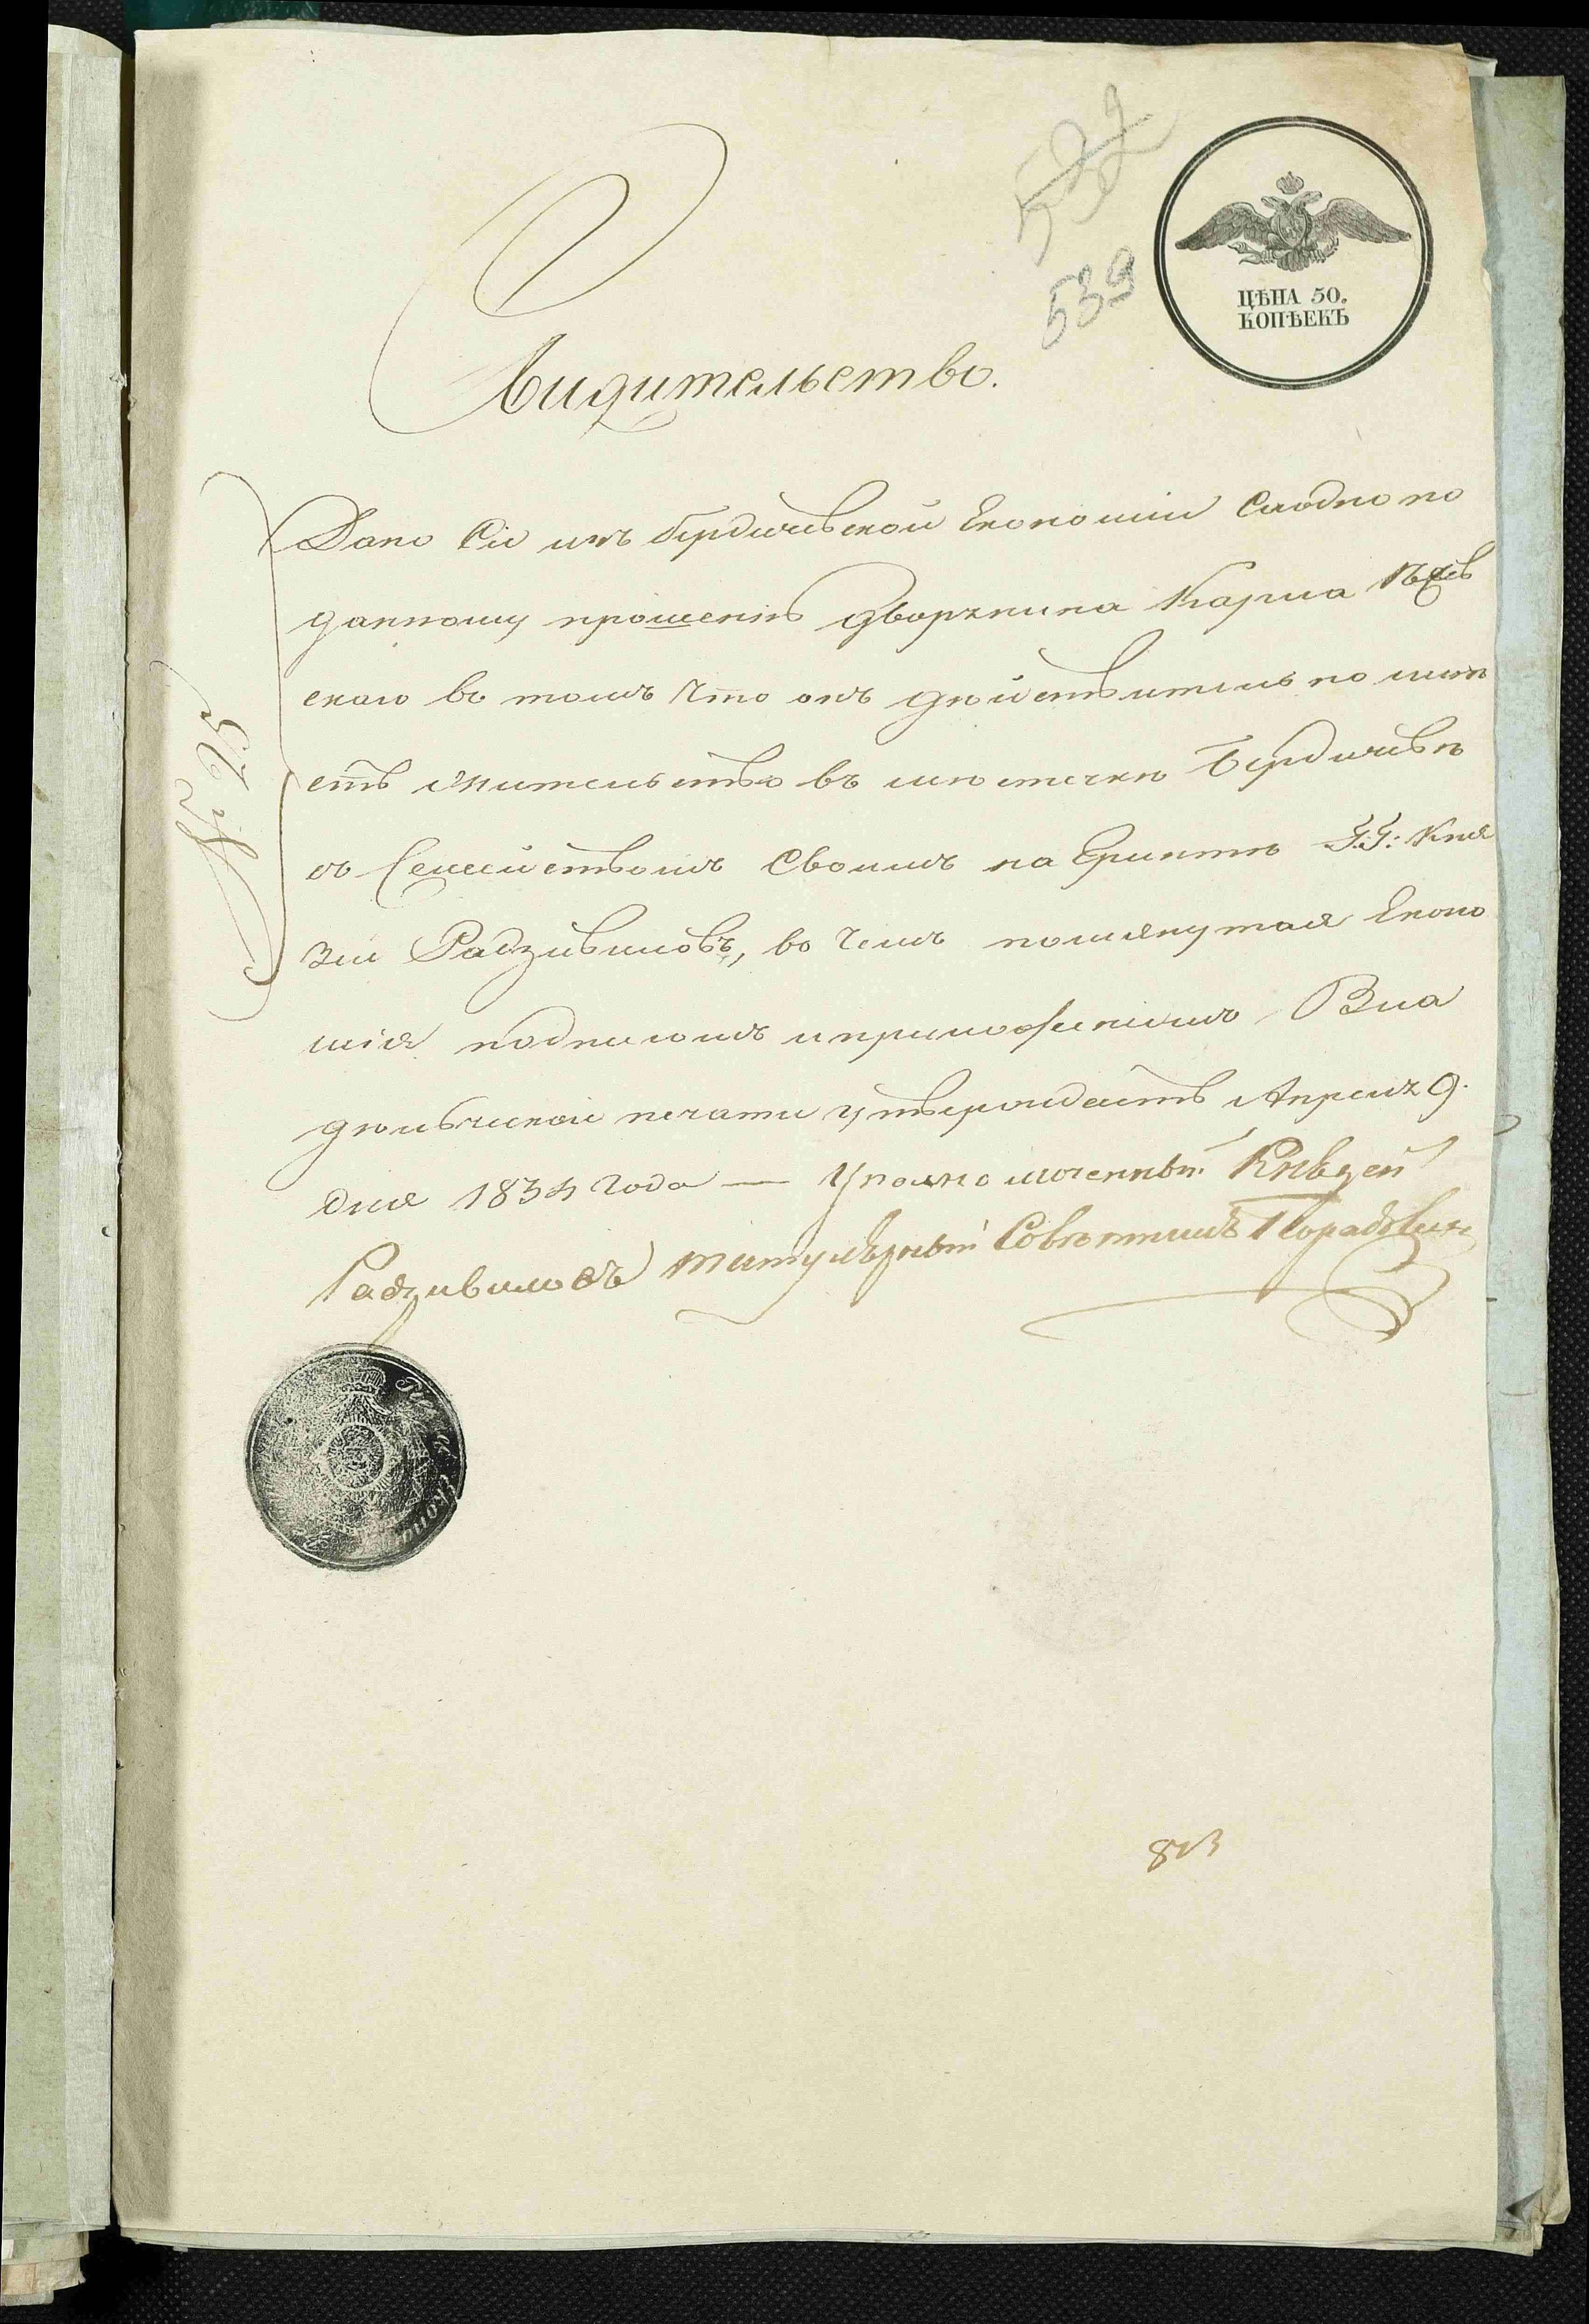 532
539
ЦѢНА 50.
КОПѢЕКЪ
Свидительство.
Дано Сіе изъ бердичевской Економіи Слодно по
данному прошенію Дворянина Карла
скаго во томъ что онъ дѣйствительно имѣ
етъ жительство въ мѣстечкѣ Бердичевѣ
съ Семействомъ Своимъ на Грунтѣ Г.Г: Кня
зей Радзивиловъ, во чемъ помянутая Еконо
мія подписомъ и приложеніемъ Вла
дѣльческой печати утверждаетъ Апреля 9.
дня 1834 года — Уполномоченный Князей
Радзивиловъ титулярный Совѣтникъ
№ 25